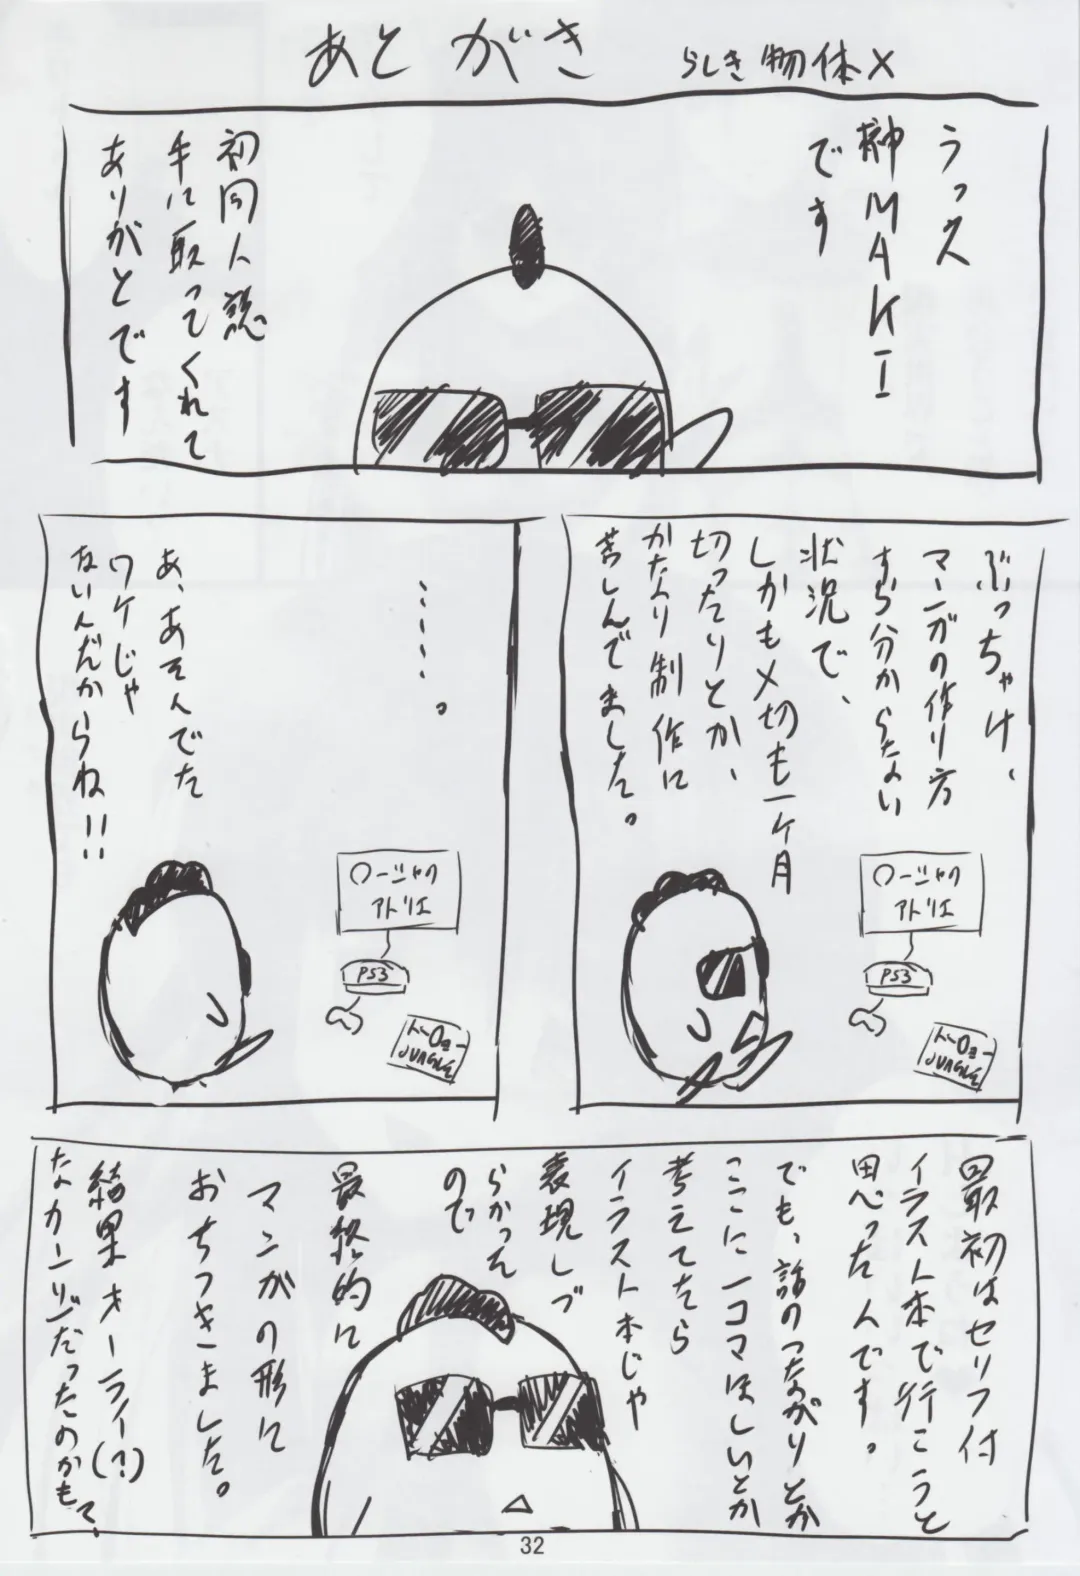 あとがき らしき物体X
うっス
榊MAKI
です
初同人誌
手に取ってくれて
ありがとです
ぶっちゃけ、
マンガの作り方
すら分からない
状況で、
しかも〆切も一ヶ月
切ったりとか、
かなり制作に
苦しんでました。
ロージャの
アトリエ
PS3
トーOョー
JUNGLE
・・・・・。
あ、あそんでた
ワケじゃ
ないんだからね!!
ロージャの
アトリエ
PS3
トーOョー
JUNGLE
最初はセリフ付
イラスト本で行こうと
思ったんです。
でも、話のつながりとか
ここに一コマほしいとか
考えてたら
イラスト本じゃ
表現しづ
らかった
ので
最終的に
マンガの形に
おちつきました。
結果オーライ(?)
なカンジだったのかもて、
32